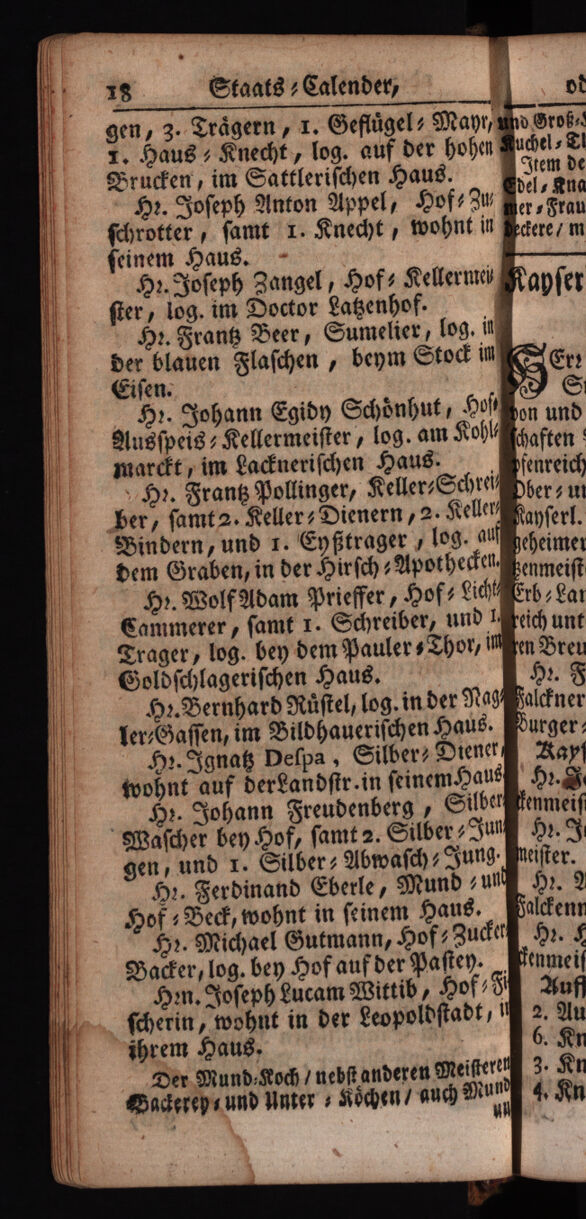 18 Staats-Calender,
gen, 3. Trägern, 1. Geflügel-Mayr,
1. Haus-Knecht, log. auf der hohen
Brucken, im Sattlerischen Haus.
Hr. Joseph Anton Appel, Hof-Zu-
schrotter, samt 1. Knecht, wohnt in
seinem Haus.
Hr. Joseph Zangel, Hof-Kellermei-
ster, log. im Doctor Latzenhof.
Hr. Frantz Beer, Sumelier, log. in
der blauen Flaschen, beym Stock im
Eisen.
Hr. Johann Egidy Schönhut, Hof-
Ausspeis-Kellermeister, log. am Kohl-
marckt, im Lacknerischen Haus.
Hr. Frantz Pollinger, Keller-Schrei-
ber, samt 2. Keller-Dienern, 2. Keller-
Bindern, und 1. Eyßtrager, log. auf
dem Graben, in der Hirsch-Apothecken.
Hr. Wolf Adam Prieffer, Hof-Licht-
Cammerer, samt 1. Schreiber, und 1.
Trager, log. bey dem Pauler-Thor, im
Goldschlagerischen Haus.
Hr. Bernhard Rüstel, log. in der Nag-
ler-Gassen, im Bildhauerischen Haus.
Hr. Ignatz Despa, Silber-Diener,
wohnt auf der Landstr. in seinem Haus
Hr. Johann Freudenberg, Silber-
Wascher bey Hof, samt 2. Silber-Jun-
gen, und 1. Silber-Abwasch-Jung.
Hr. Ferdinand Eberle, Mund-und
Hof-Beck, wohnt in seinem Haus.
Hr. Michael Gutmann, Hof-Zucker-
Backer, log. bey Hof auf der Pastey.
Hrn. Joseph Lucam Wittib, Hof-Fi-
scherin, wohnt in der Leopoldstadt, in
ihrem Haus.
Der Mund-Koch / nebst anderen Meisteren
Backerey- und Unter-Köchen / auch Mund
un
od
und Groß-
Kuchel-
Item de
Edel-Kna
mer-Frau
deckere / m
Kayser
HErr
von und
schaften
Ober-un
Kayserl.
geheimer
Erb-Lan
reich unt
Hr. F
Falckner
Burger-
Kays
Hr.
Hr. J
meister.
Hr. A
Falckenn
Hr. H
Auff
2. Au
6. Kn
3. Kn
4. Kn